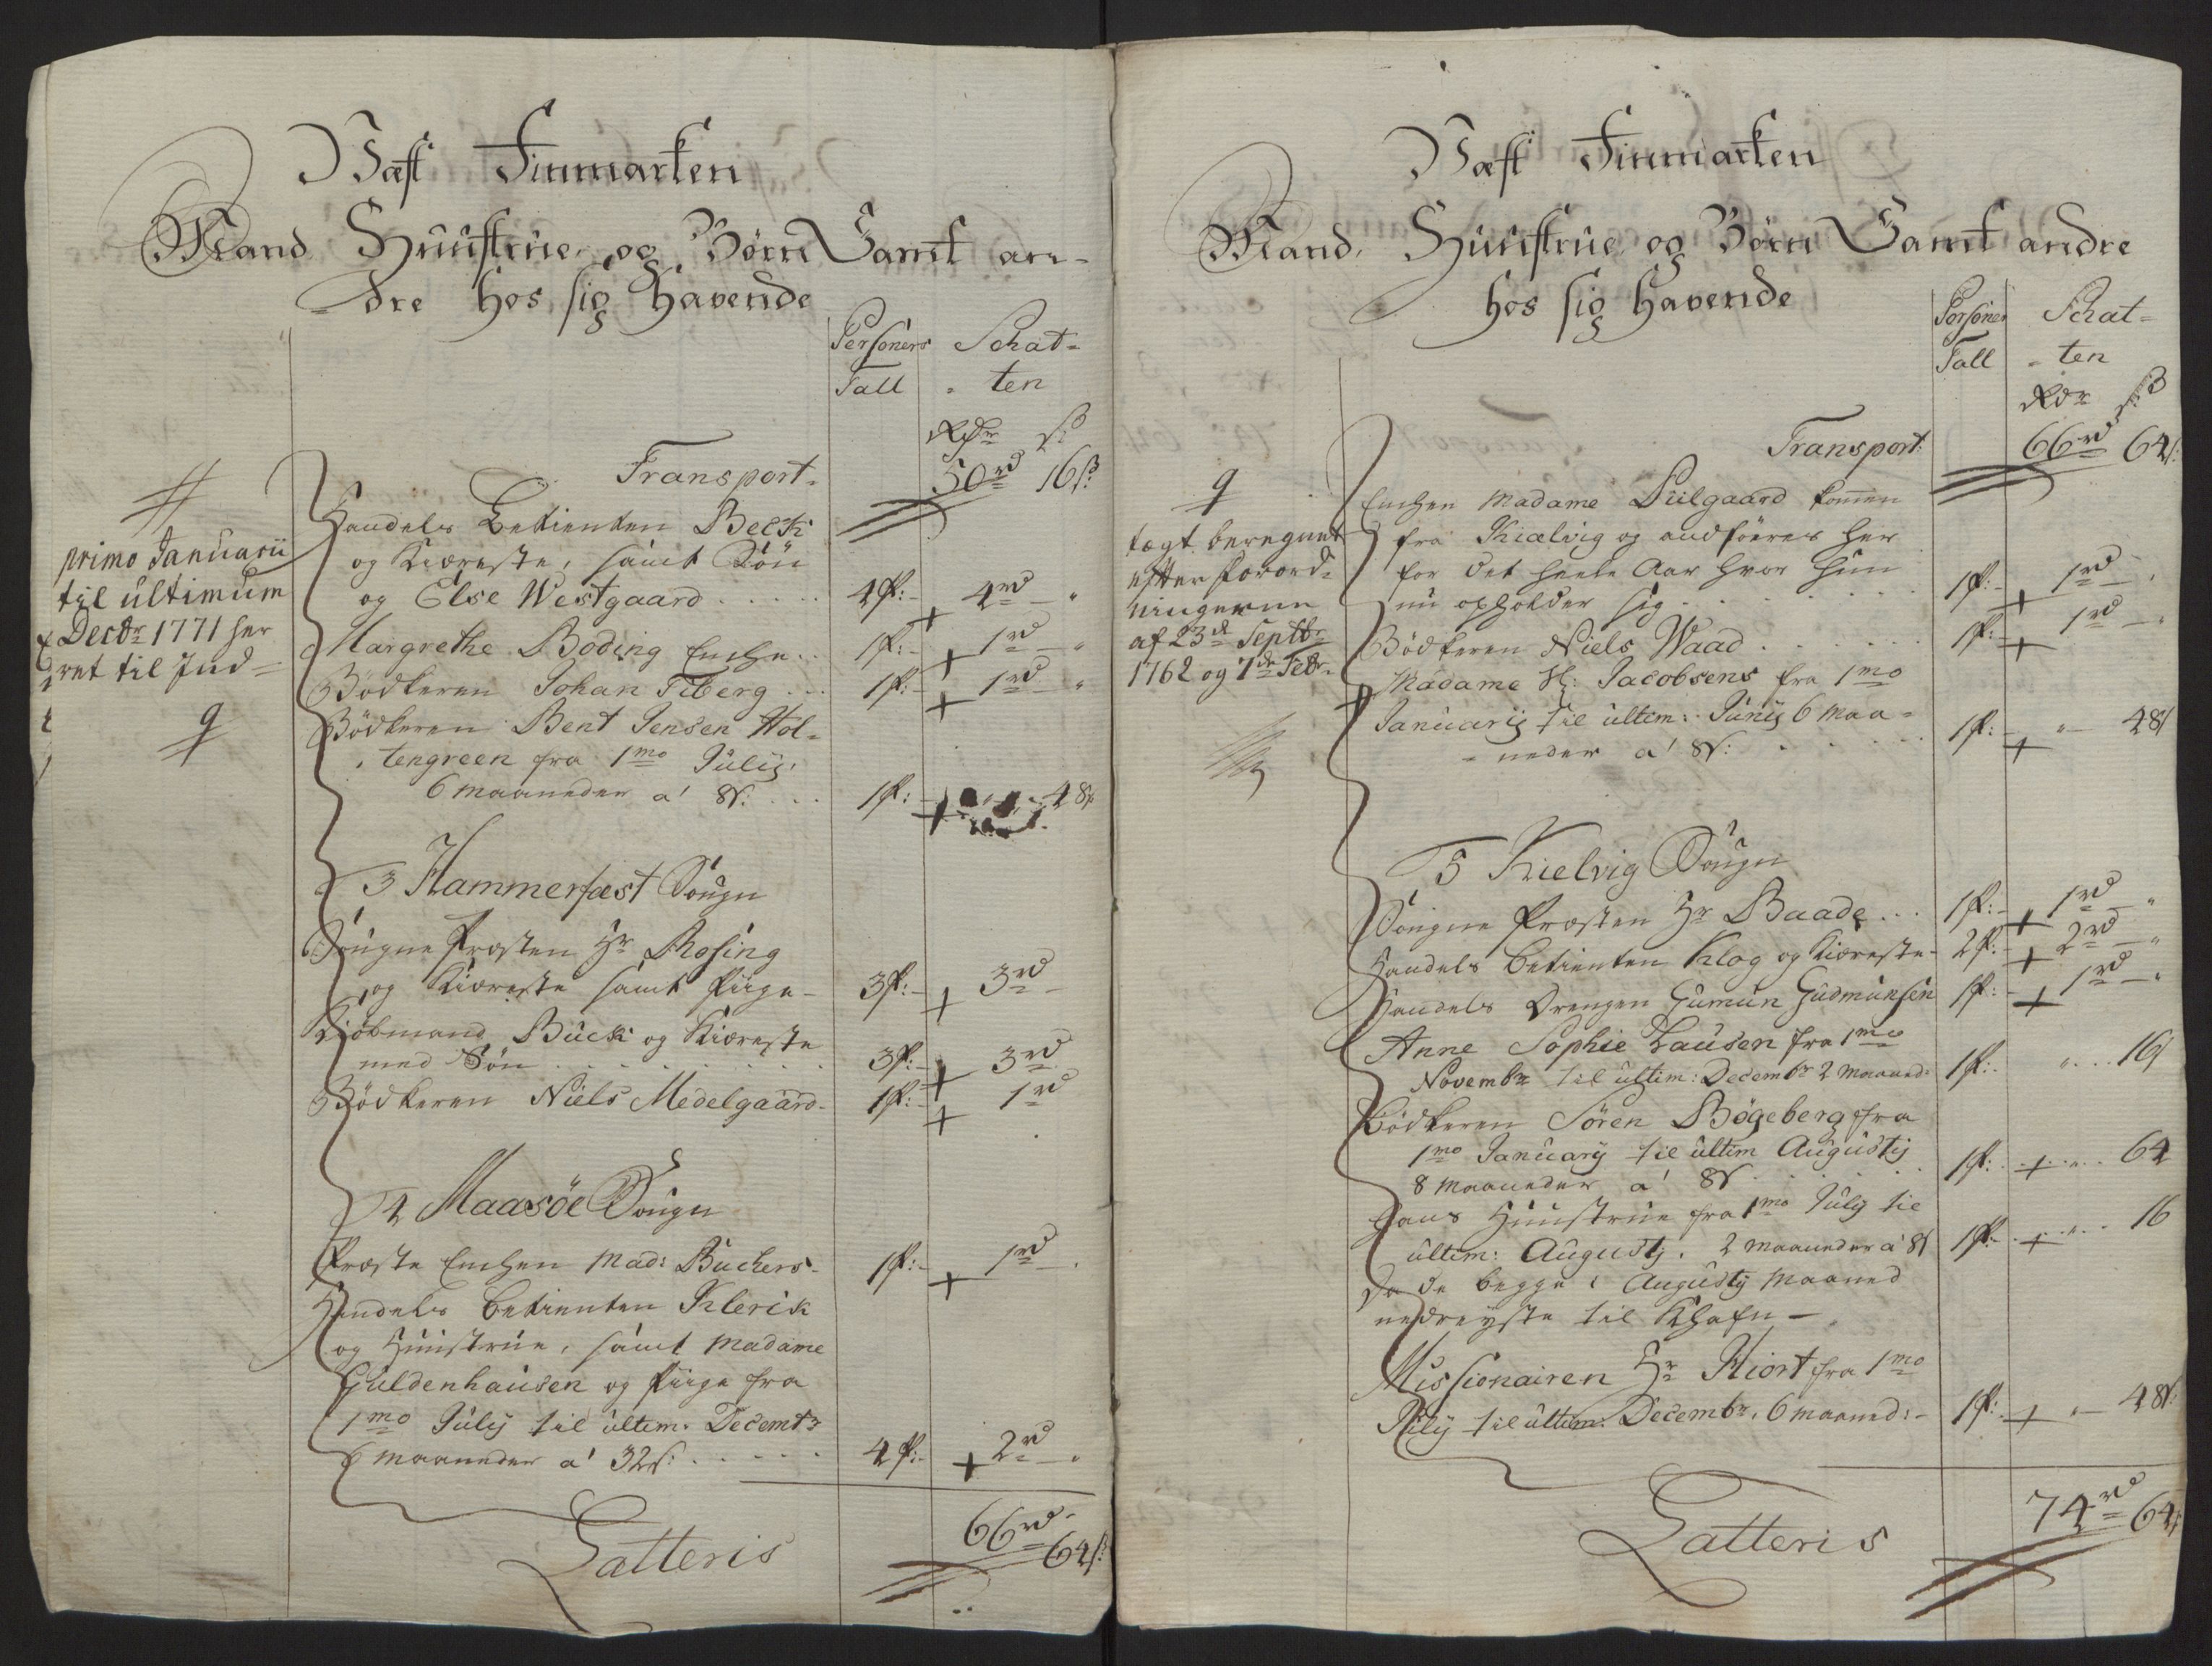 Væst Finmarken
Mand Huustrue og Børn Samt an-
dre hos sig havende
Persohners Schat-
Tall - ten
Rdr ß
Transport. 50rd 16ß
#
primo Januarii
til ultimum
Decbr 1771 her
ret til Ind=
Handels Betienten Beck
og Kiæreste, samt Søn
og Else Westgaard . . . . . 4P:- 4rd - "
Margrethe Boding Enche .. 1P:- 1rd - "
Bødkeren Johan Fiberg ... 1P:- 1rd - "
Bødkeren Bent Jensen Hol-
tengreen fra 1mo Julij
6 maaneder a' 8ß: ... 1P:- 48ß
3 Hammerfæst Sougn
Sougne Præsten Hr Rosing
og Kiæreste samt Piige - 3P:- 3rd -
Kiøbmand Buck og Kiæreste
med Søn . . . . . . . 3P:- 3rd
Bødkeren Niels Medelgaard- 1P:- 1rd
4 Maasöe Sougn
Præste Enchen Mad: Buchers- 1P:- 1rd -
Handels Betienten Klerik
og Huustrue, samt Madame
Guldenhausen og Piige fra
1mo Julij til ultim: Decembr
6 maaneder a' 32ß: . . . . . 4P:- 2rd - "
Latteris 66rd 64ß:
Væst Finmarken
Mand, Huustrue og Børn Samt andre
hos sig havende
Persohner Schat-
Tall - ten
Rdr ß
Transport: 66rd 64ß
tægt beregnet
efter Forord-
ningerne
af 23de Septbr
1762 og 7de Febr.
Enchen Madame Piilgaard kommen
fra Kiælvig og andføeres her
for det heele Aar hvor hun
nu opholder sig . . . . . . 1P:- 1rd -
Bødkeren Niels Waad . . . . . 1P:- 1rd -
Madame Jacobsens fra 1mo
Januarij til ultim: Junij 6 maa-
neder a' 8ß: . . . . . 1P:- " - 48ß
5 Kielvig Sougn
Sougne Præsten Hr Baade ... 1P:- 1rd - "
Handels Betienten Klog og Kiæreste- 2P:- 2rd - "
Handels Drengen Gumun Gudmunsen 1P:- 1rd - "
Anne Sophie Lausen fra 1mo
Novembr til ultim: Decembr 2 maaned: 1P:- " . . . 16ß
Bødkeren Sören Bøgeberg fra
1mo Januarij til ultim Augustij
8 maaneder a' 8ß . . . . . 1P:- " . . 64
Hans Huustrue fra 1mo Julij til
ultim: Augustj. 2 maaneder a' 8ß 1P:- " . . 16
da de begge i Augustij Maaned
nedreyste til Khafn -
Missionairen Hr Hiort fra 1mo
Julij til ultim: Decembr. 6 maaned:- 1P:- " - 48ß:
Latteris 74rd 64ß